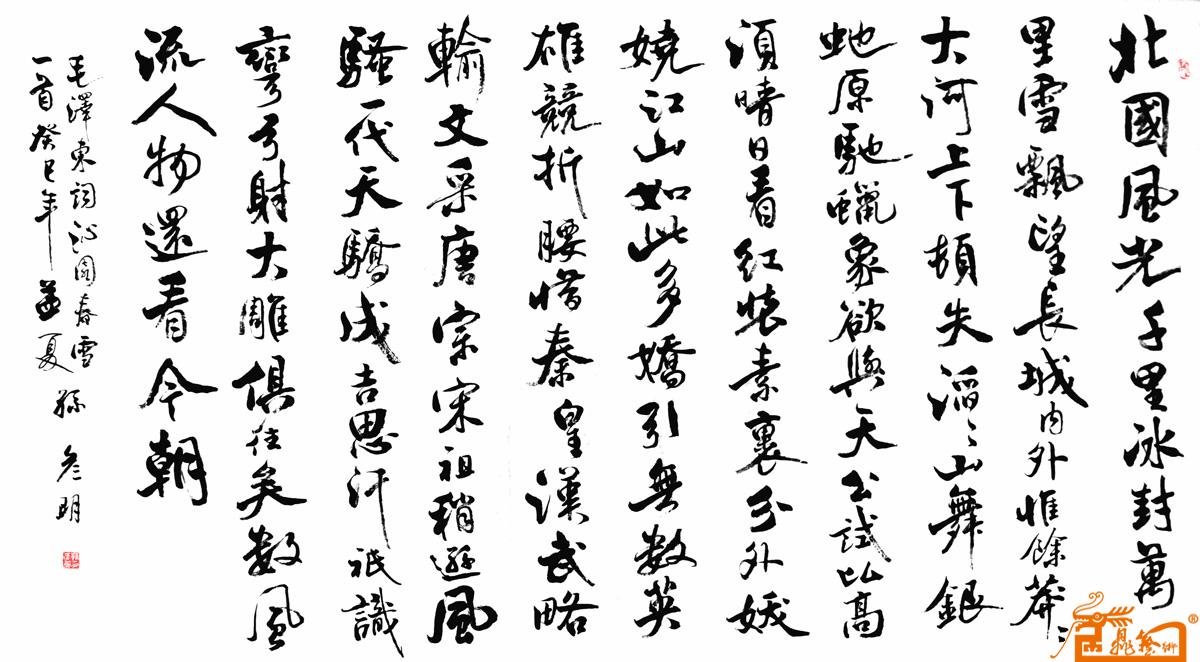 北國風光千里冰封萬
里雪飄望長城内外惟餘莽々
大河上下頓失滔々山舞銀
虵原馳蠟象欲與天公試比高
須晴日看紅裝素裹分外妖
嬈江山如此多嬌引無數英
雄競折腰惜秦皇漢武略
輸文采唐宗宋祖稍遜風
騷一代天驕成吉思汗祇識
彎弓射大雕俱往矣數風
流人物還看今朝
毛澤東詞沁園春雪
一首癸巳年孟夏孫明